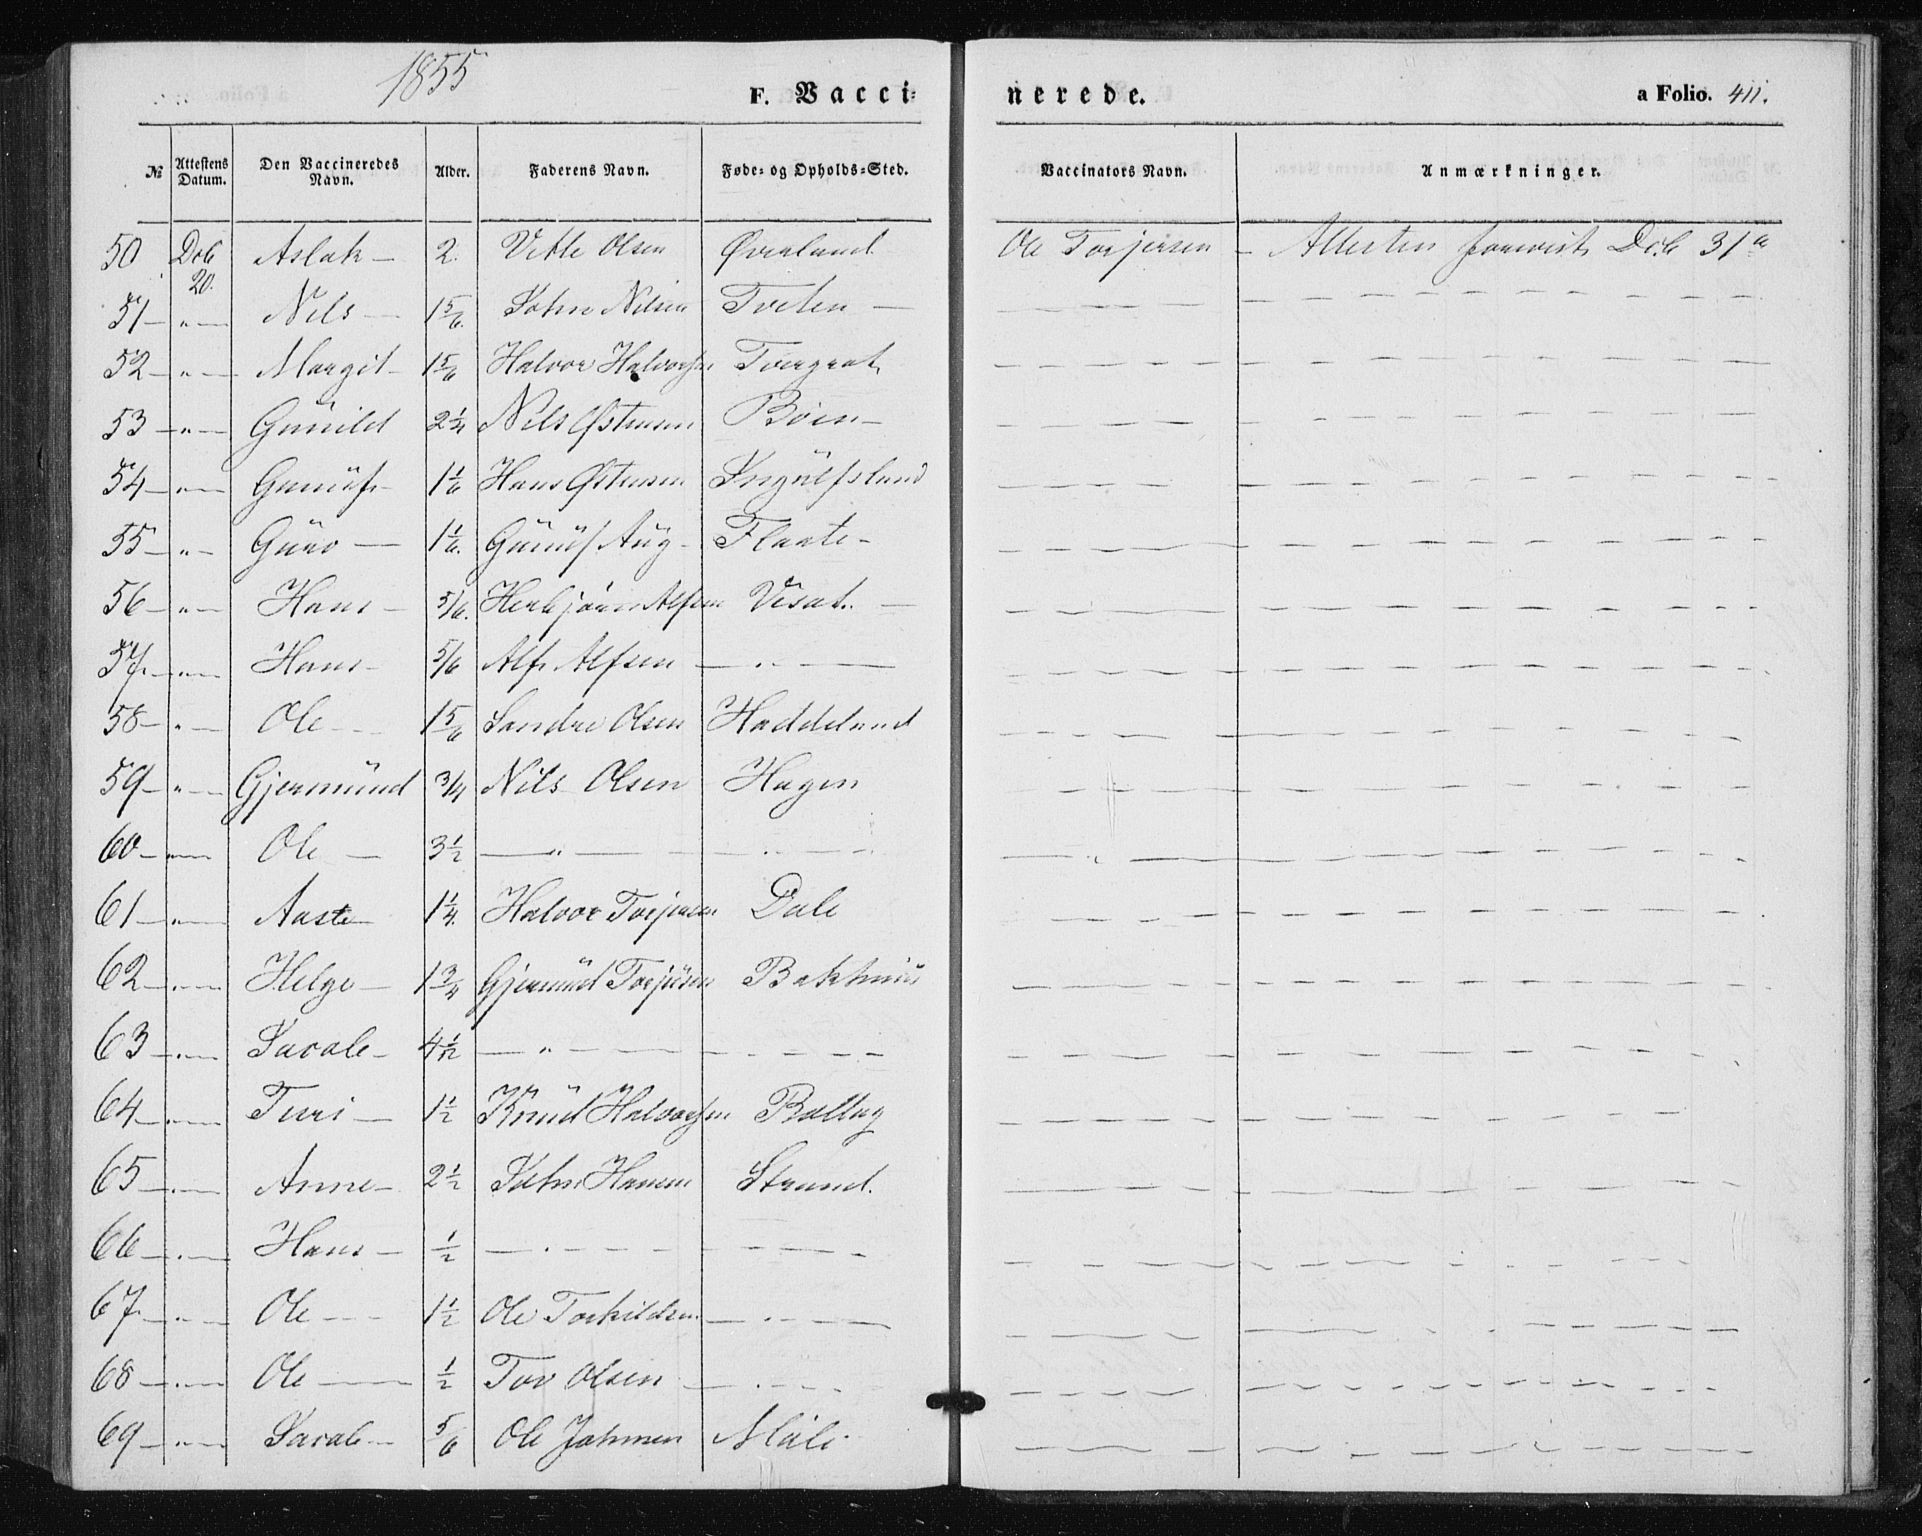 1855
F. Vacci=
nerede.
a Folio. 411.
№ | Attestens Datum. | Den Vaccineredes Navn. | Alder. | Faderens Navn. | Føde= og Opholds=Sted. | Vaccinators Navn. | Anmærkninger.
50 | Dcb 20. | Aslak — | 2. | Vetle Olsen | Øverland | Ole Torjersen | — Attesten foreviist Dcb 31
51 — | " — | Nils — | 1 5/6. | John Nilsen | Tveten —
52 — | " — | Margit — | 1 5/6 | Halvor Halvorsen | Tvergrot
53 — | " — | Gunild | 2 1/4 | Nils Østensen | Böen —
54 — | " — | Gunuf — | 1 1/6 | Hans Østensen | Ingulfsland
55 — | " — | Guro — | 1 1/6. | Gunuf Aug — | Flaate —
56 — | " — | Hans — | 5/6. | Herbjörn Alfsen | Visat. —
57 — | " — | Hans — | 5/6 | Alf Alfsen | — " —
58 — | " — | Ole — | 1 5/6 | Sondre Olsen | Haddeland
59 — | " — | Gjermund | 3/4 | Nils Olsen | Hagen
60 — | " — | Ole — | 3 1/2 | — " — | — " —
61 — | " — | Aaste | 1 1/4. | Halvor Torjersen | Dale
62 — | " — | Helge — | 1 3/4 | Gjermund Torjusen | Bakhuus
63 — | " — | Jarale — | 4 1/12 | — " — | — — —
64 — | " — | Turi — | 1 1/2 | Knud Halvorsen | Ballag
65 — | " — | Anne — | 2 1/2 | John Hansen | Strand.
66 — | " — | Hans — | 1/2 | — " — | — — —
67 — | " — | Ole — | 1 1/2 | Ole Torkildsen | — " —
68 — | " — | Ole — | 1/2 | Tov Olsen | — " —
69 — | " — | Jarale — | 5/6 | Ole Johnsen | Mæli